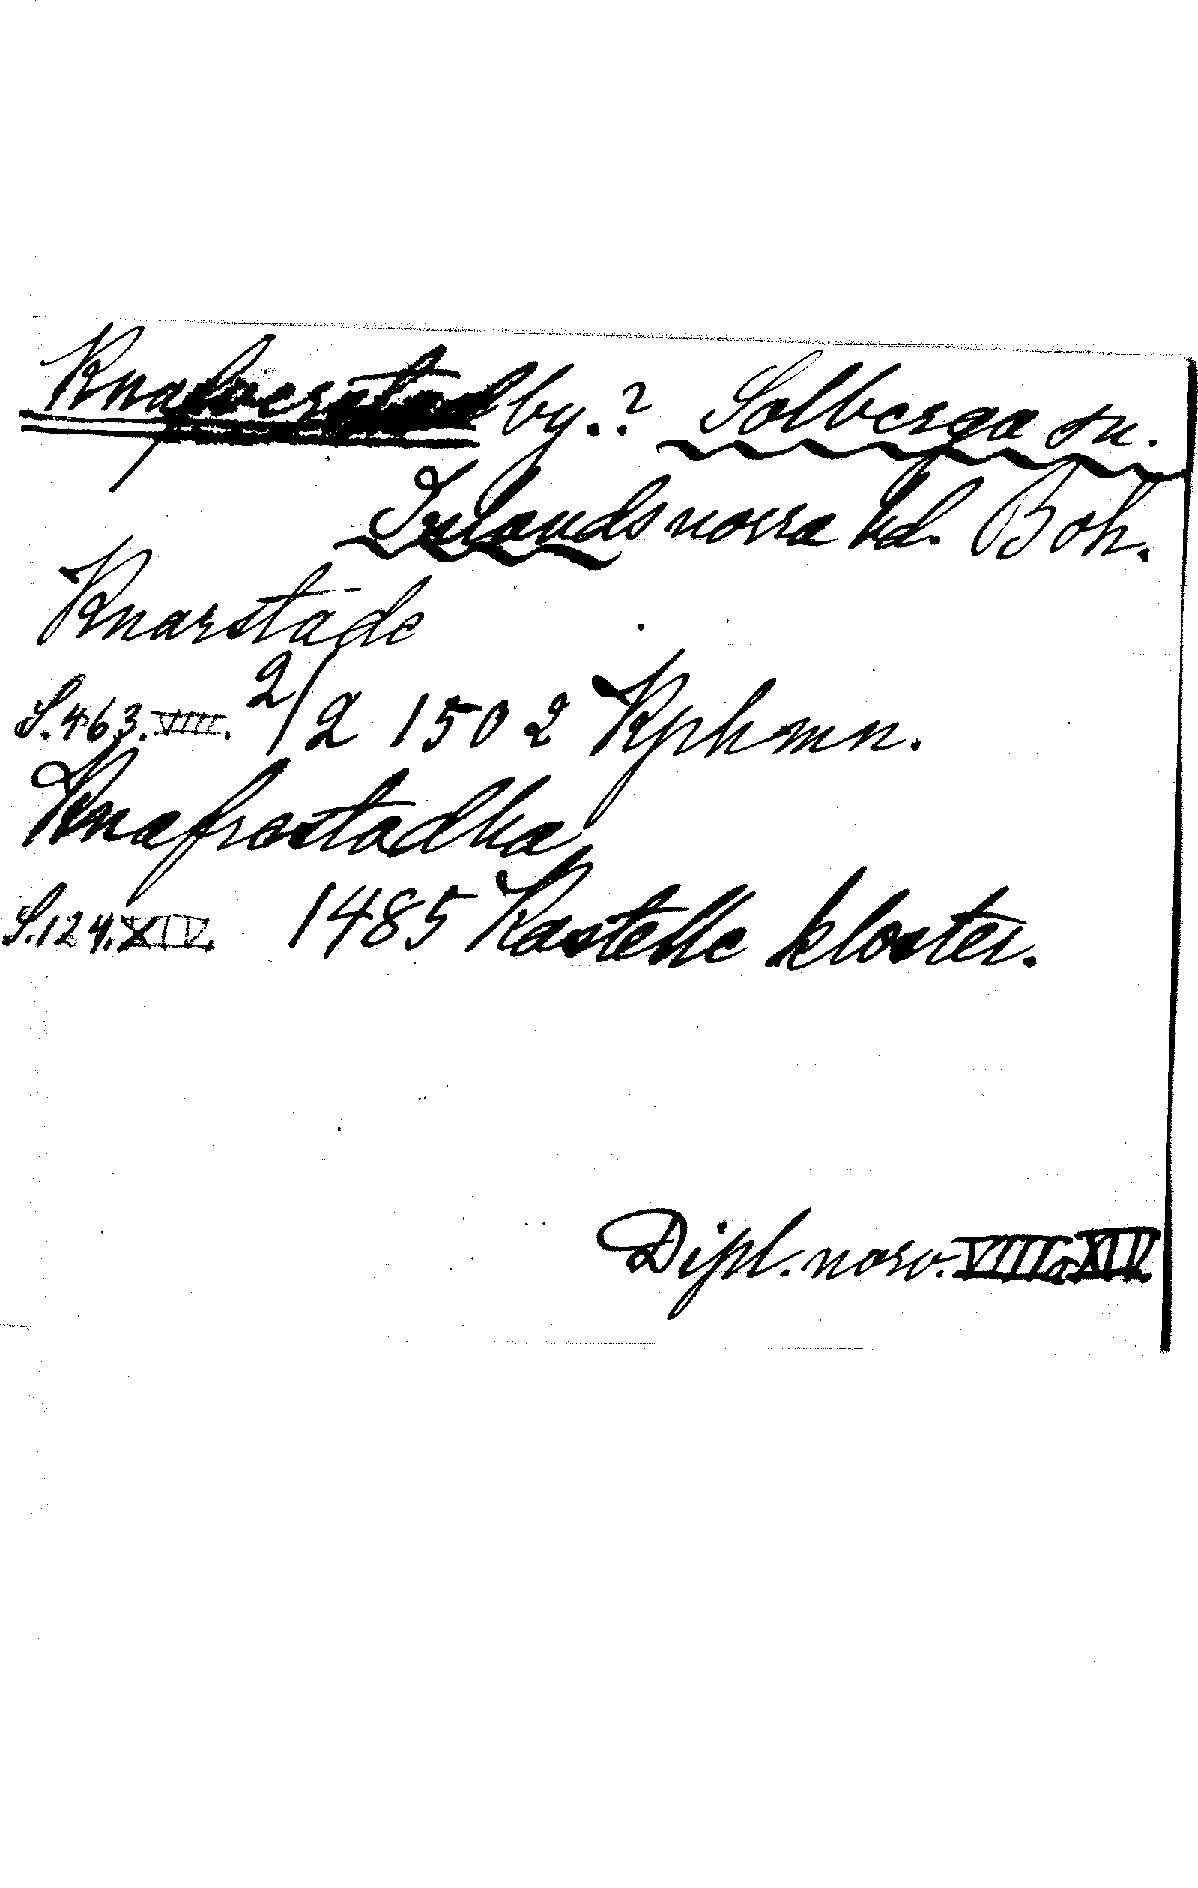 Knafverstad by.? Solberga sn.
Inlands norra hd. Boh.
Knarstade
S.463.VIII. 2/2 1502 Kphmn.
Knafrastadha
S.124.XIV. 1485 Kastelle kloster.
Dipl. norv. VIII o XIV